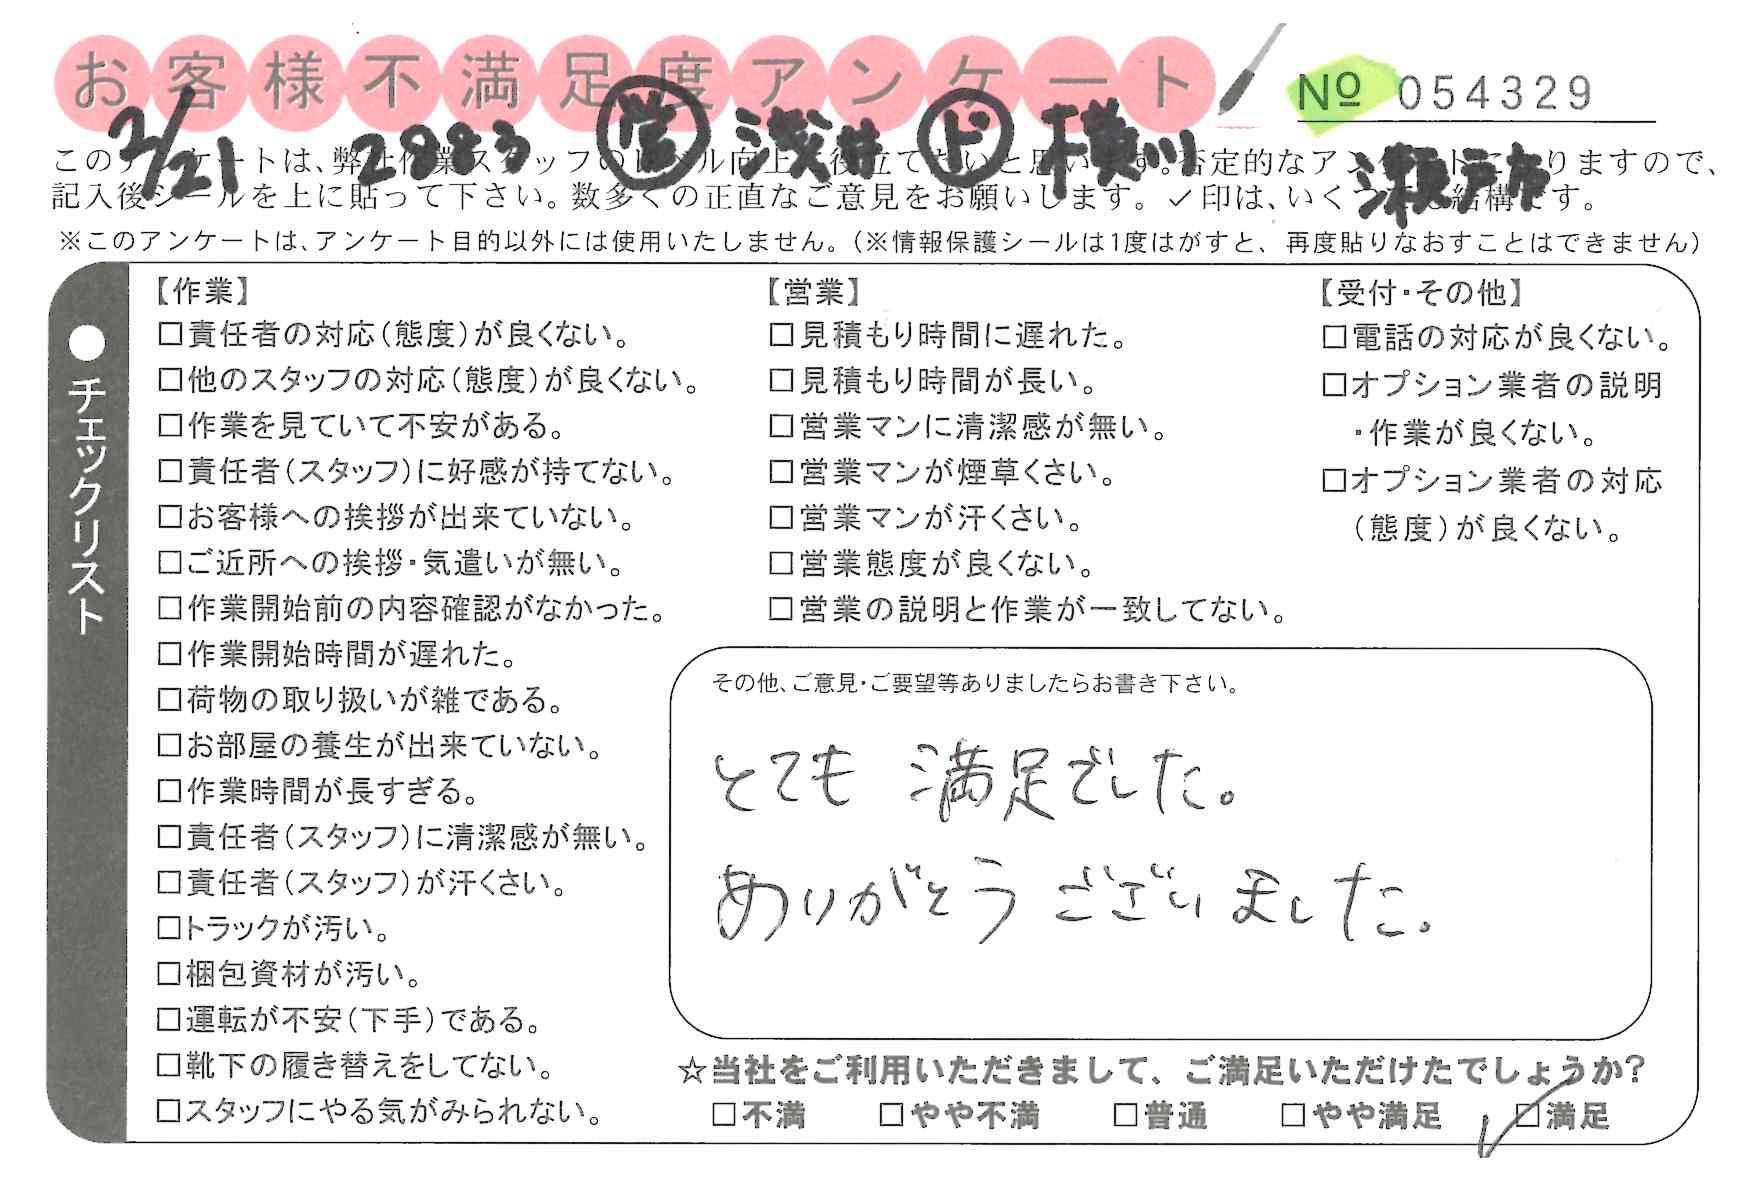 お客様不満足度アンケート
№ 054329
2/21 2883 営 浅井 ド 横川 瀬戸市
このアンケートは、弊社作業スタッフのレベル向上に役立てたいと思います。否定的なアンケートになりますので、
記入後シールを上に貼って下さい。数多くの正直なご意見をお願いします。✓印は、いくつでも結構です。
※このアンケートは、アンケート目的以外には使用いたしません。（※情報保護シールは1度はがすと、再度貼りなおすことはできません）
●チェックリスト
【作業】
□責任者の対応（態度）が良くない。
□他のスタッフの対応（態度）が良くない。
□作業を見ていて不安がある。
□責任者（スタッフ）に好感が持てない。
□お客様への挨拶が出来ていない。
□ご近所への挨拶・気遣いが無い。
□作業開始前の内容確認がなかった。
□作業開始時間が遅れた。
□荷物の取り扱いが雑である。
□お部屋の養生が出来ていない。
□作業時間が長すぎる。
□責任者（スタッフ）に清潔感が無い。
□責任者（スタッフ）が汗くさい。
□トラックが汚い。
□梱包資材が汚い。
□運転が不安（下手）である。
□靴下の履き替えをしてない。
□スタッフにやる気がみられない。
【営業】
□見積もり時間に遅れた。
□見積もり時間が長い。
□営業マンに清潔感が無い。
□営業マンが煙草くさい。
□営業マンが汗くさい。
□営業態度が良くない。
□営業の説明と作業が一致してない。
【受付・その他】
□電話の対応が良くない。
□オプション業者の説明
・作業が良くない。
□オプション業者の対応
（態度）が良くない。
その他、ご意見・ご要望等ありましたらお書き下さい。
とても 満足でした。
ありがとう ございました。
☆当社をご利用いただきまして、ご満足いただけたでしょうか？
□不満 □やや不満 □普通 □やや満足 ☑満足